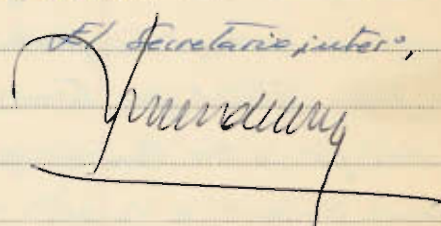 El Secretario, inter.º,